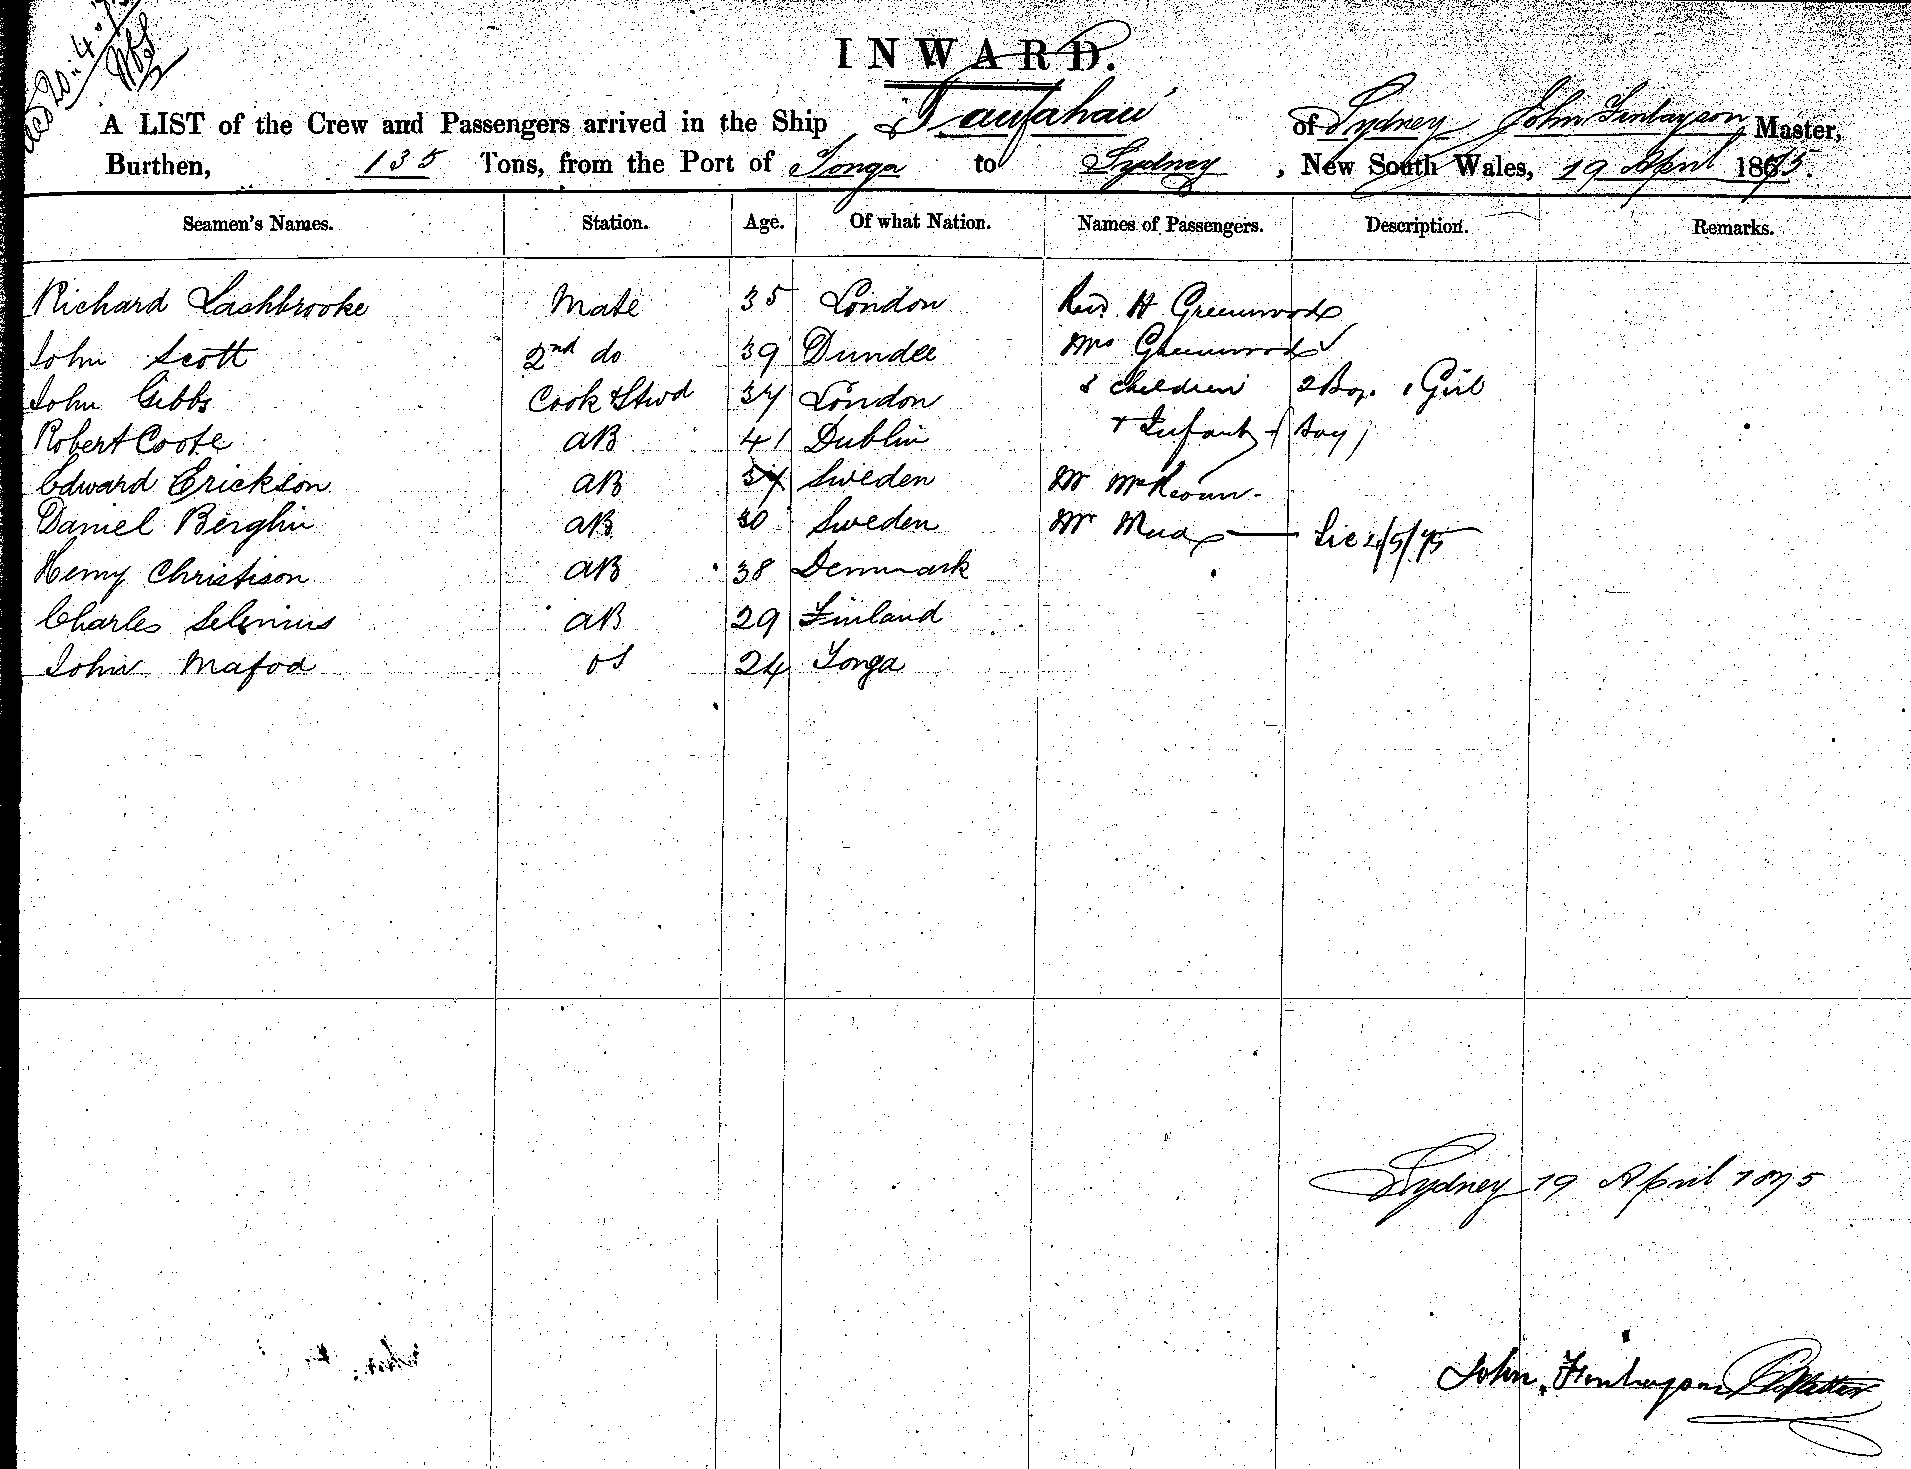 INWARD.
A LIST of the Crew and Passengers arrived in the Ship Taufahau of Sydney John Finlayson Master,
Burthen, 135 Tons, from the Port of Tonga to Sydney, New South Wales, 19 April 1875.
Seamen's Names. Station. Age. Of what Nation. Names of Passengers. Description. Remarks.
Richard Lashbrooke Mate 35 London Revd H Greenwood
John Scott 2nd do 39 Dundee Mrs Greenwood
John Gibbs Cook & Stwd 34 London & children 2 Boys 1 Girl
Robert Coote AB 41 Dublin + Infant Boy
Edward Erickson AB 34 Sweden Mr McKeown
Daniel Berghin AB 30 Sweden Mr 4/5/75
Henry Christison AB 38 Denmark
Charles Selenius AB 29 Finland
John Mafoa OS 24 Tonga
Sydney 19 April 1875
John Finlayson Master